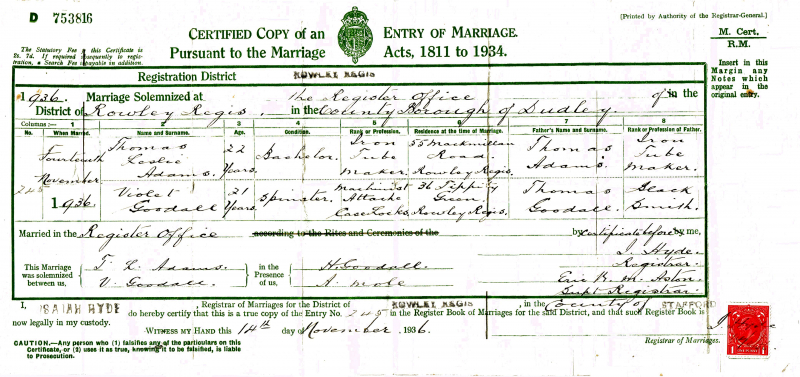 D 753816
[Printed by Authority of the Registrar-General.]
CERTIFIED COPY of an ENTRY OF MARRIAGE.
Pursuant to the Marriage Acts, 1811 to 1934.
M. Cert.
R.M.
The Statutory Fee for this Certificate is
2s. 7d. If required subsequently to regis-
tration, a Search Fee is payable in addition.
Insert in this
Margin any
Notes which
appear in the
original entry.
Registration District ROWLEY REGIS
1936. Marriage Solemnized at the Register Office in the
District of Rowley Regis, in the County Borough of Dudley.
Columns:— 1 2 3 4 5 6 7 8
No. When Married. Name and Surname. Age. Condition. Rank or Profession. Residence at the time of Marriage. Father's Name and Surname. Rank or Profession of Father.
245 Fourteenth November 1936 Thomas Leslie Adams. 22 Years. Bachelor. Iron Tube Maker. 55 Macmillan Road. Rowley Regis. Thomas Adams. Iron Tube Maker.
Violet Goodall 21 Years Spinster. Machinist Attache Case Locks. 36 Tippity Green. Rowley Regis. Thomas Goodall. Black Smith.
Married in the Register Office according to the Rites and Ceremonies of the by Certificate before me,
This Marriage was solemnized between us, T. L. Adams. V. Goodall. in the Presence of us, H. Goodall. A. Mole
I. Hyde.
Registrar.
Eric B. M. Aston
Supt Registrar.
I, ISAIAH HYDE, Registrar of Marriages for the District of ROWLEY REGIS, in the County of STAFFORD
do hereby certify that this is a true copy of the Entry No. 245 in the Register Book of Marriages for the said District, and that such Register Book is
now legally in my custody.
WITNESS MY HAND this 14th day November 1936.
Registrar of Marriages.
CAUTION.—Any person who (1) falsifies any of the particulars on this
Certificate, or (2) uses it as true, knowing it to be falsified, is liable
to Prosecution.